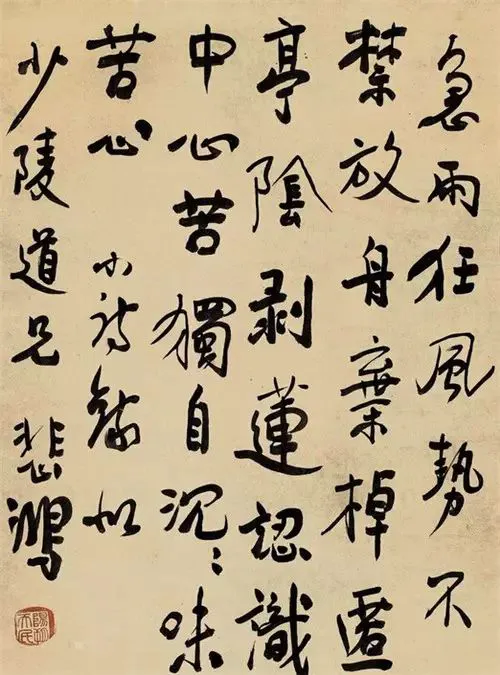 急雨狂風勢不
禁放舟棄棹匿
亭陰剥蓮認識
中心苦獨自沉〻味
苦心 小詩録似
少陵道兄 悲鴻
陽朔天民